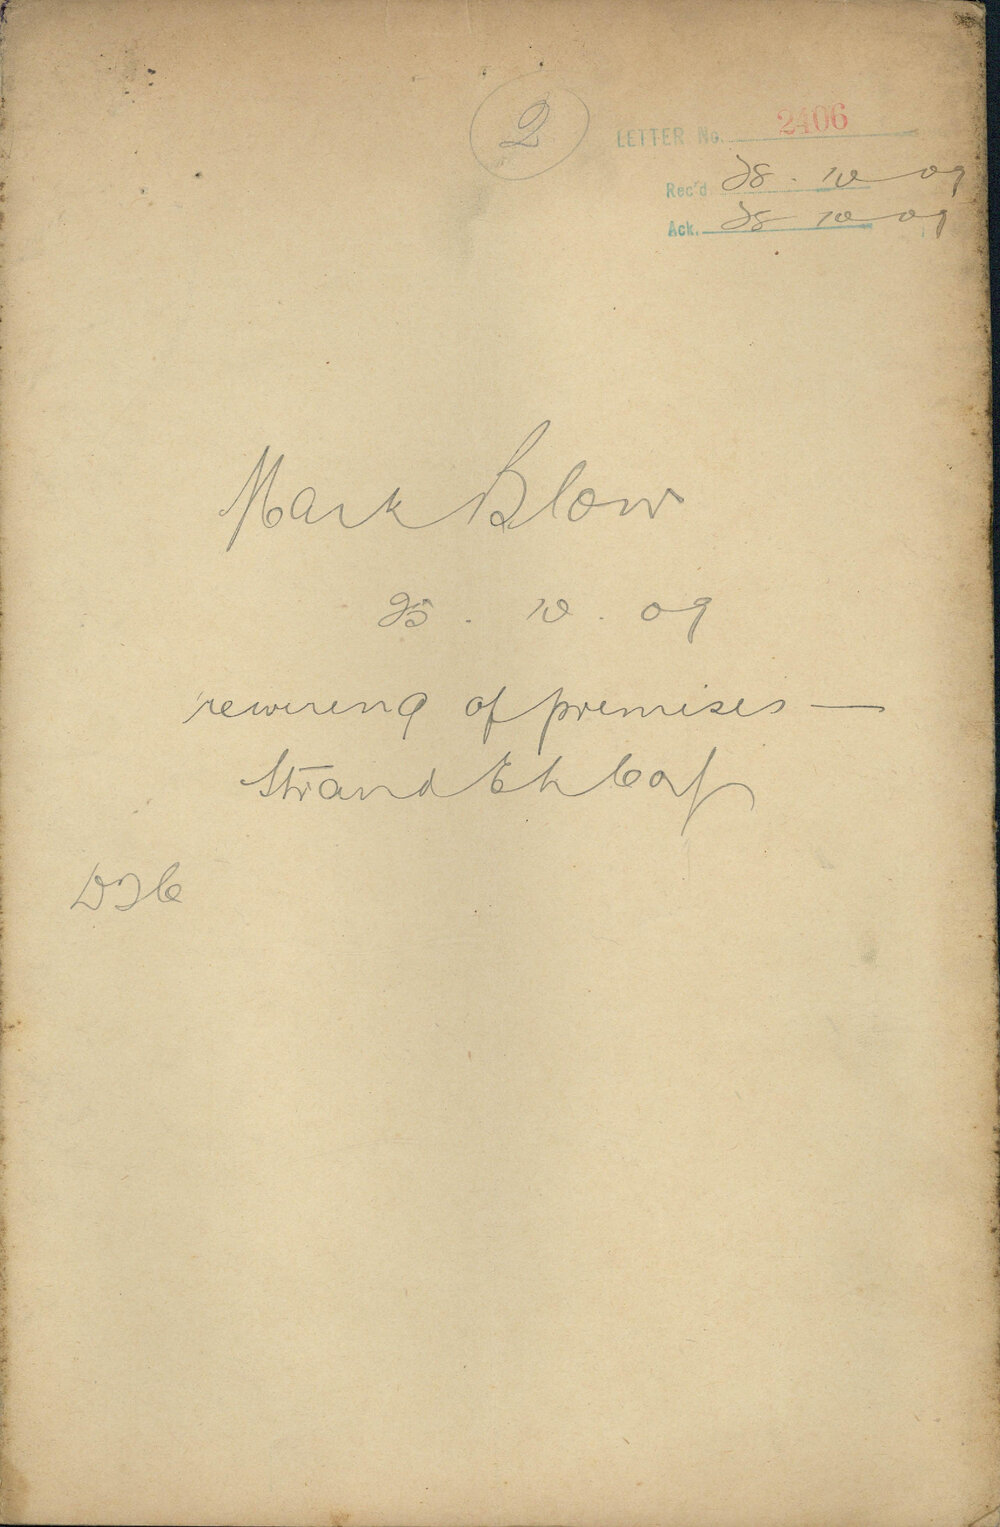 2
LETTER No. 2406
Rec'd 28 . 10 09
Ack. 28 10 09
Mark Blow
25 . 10 . 09
rewiring of premises —
Strand